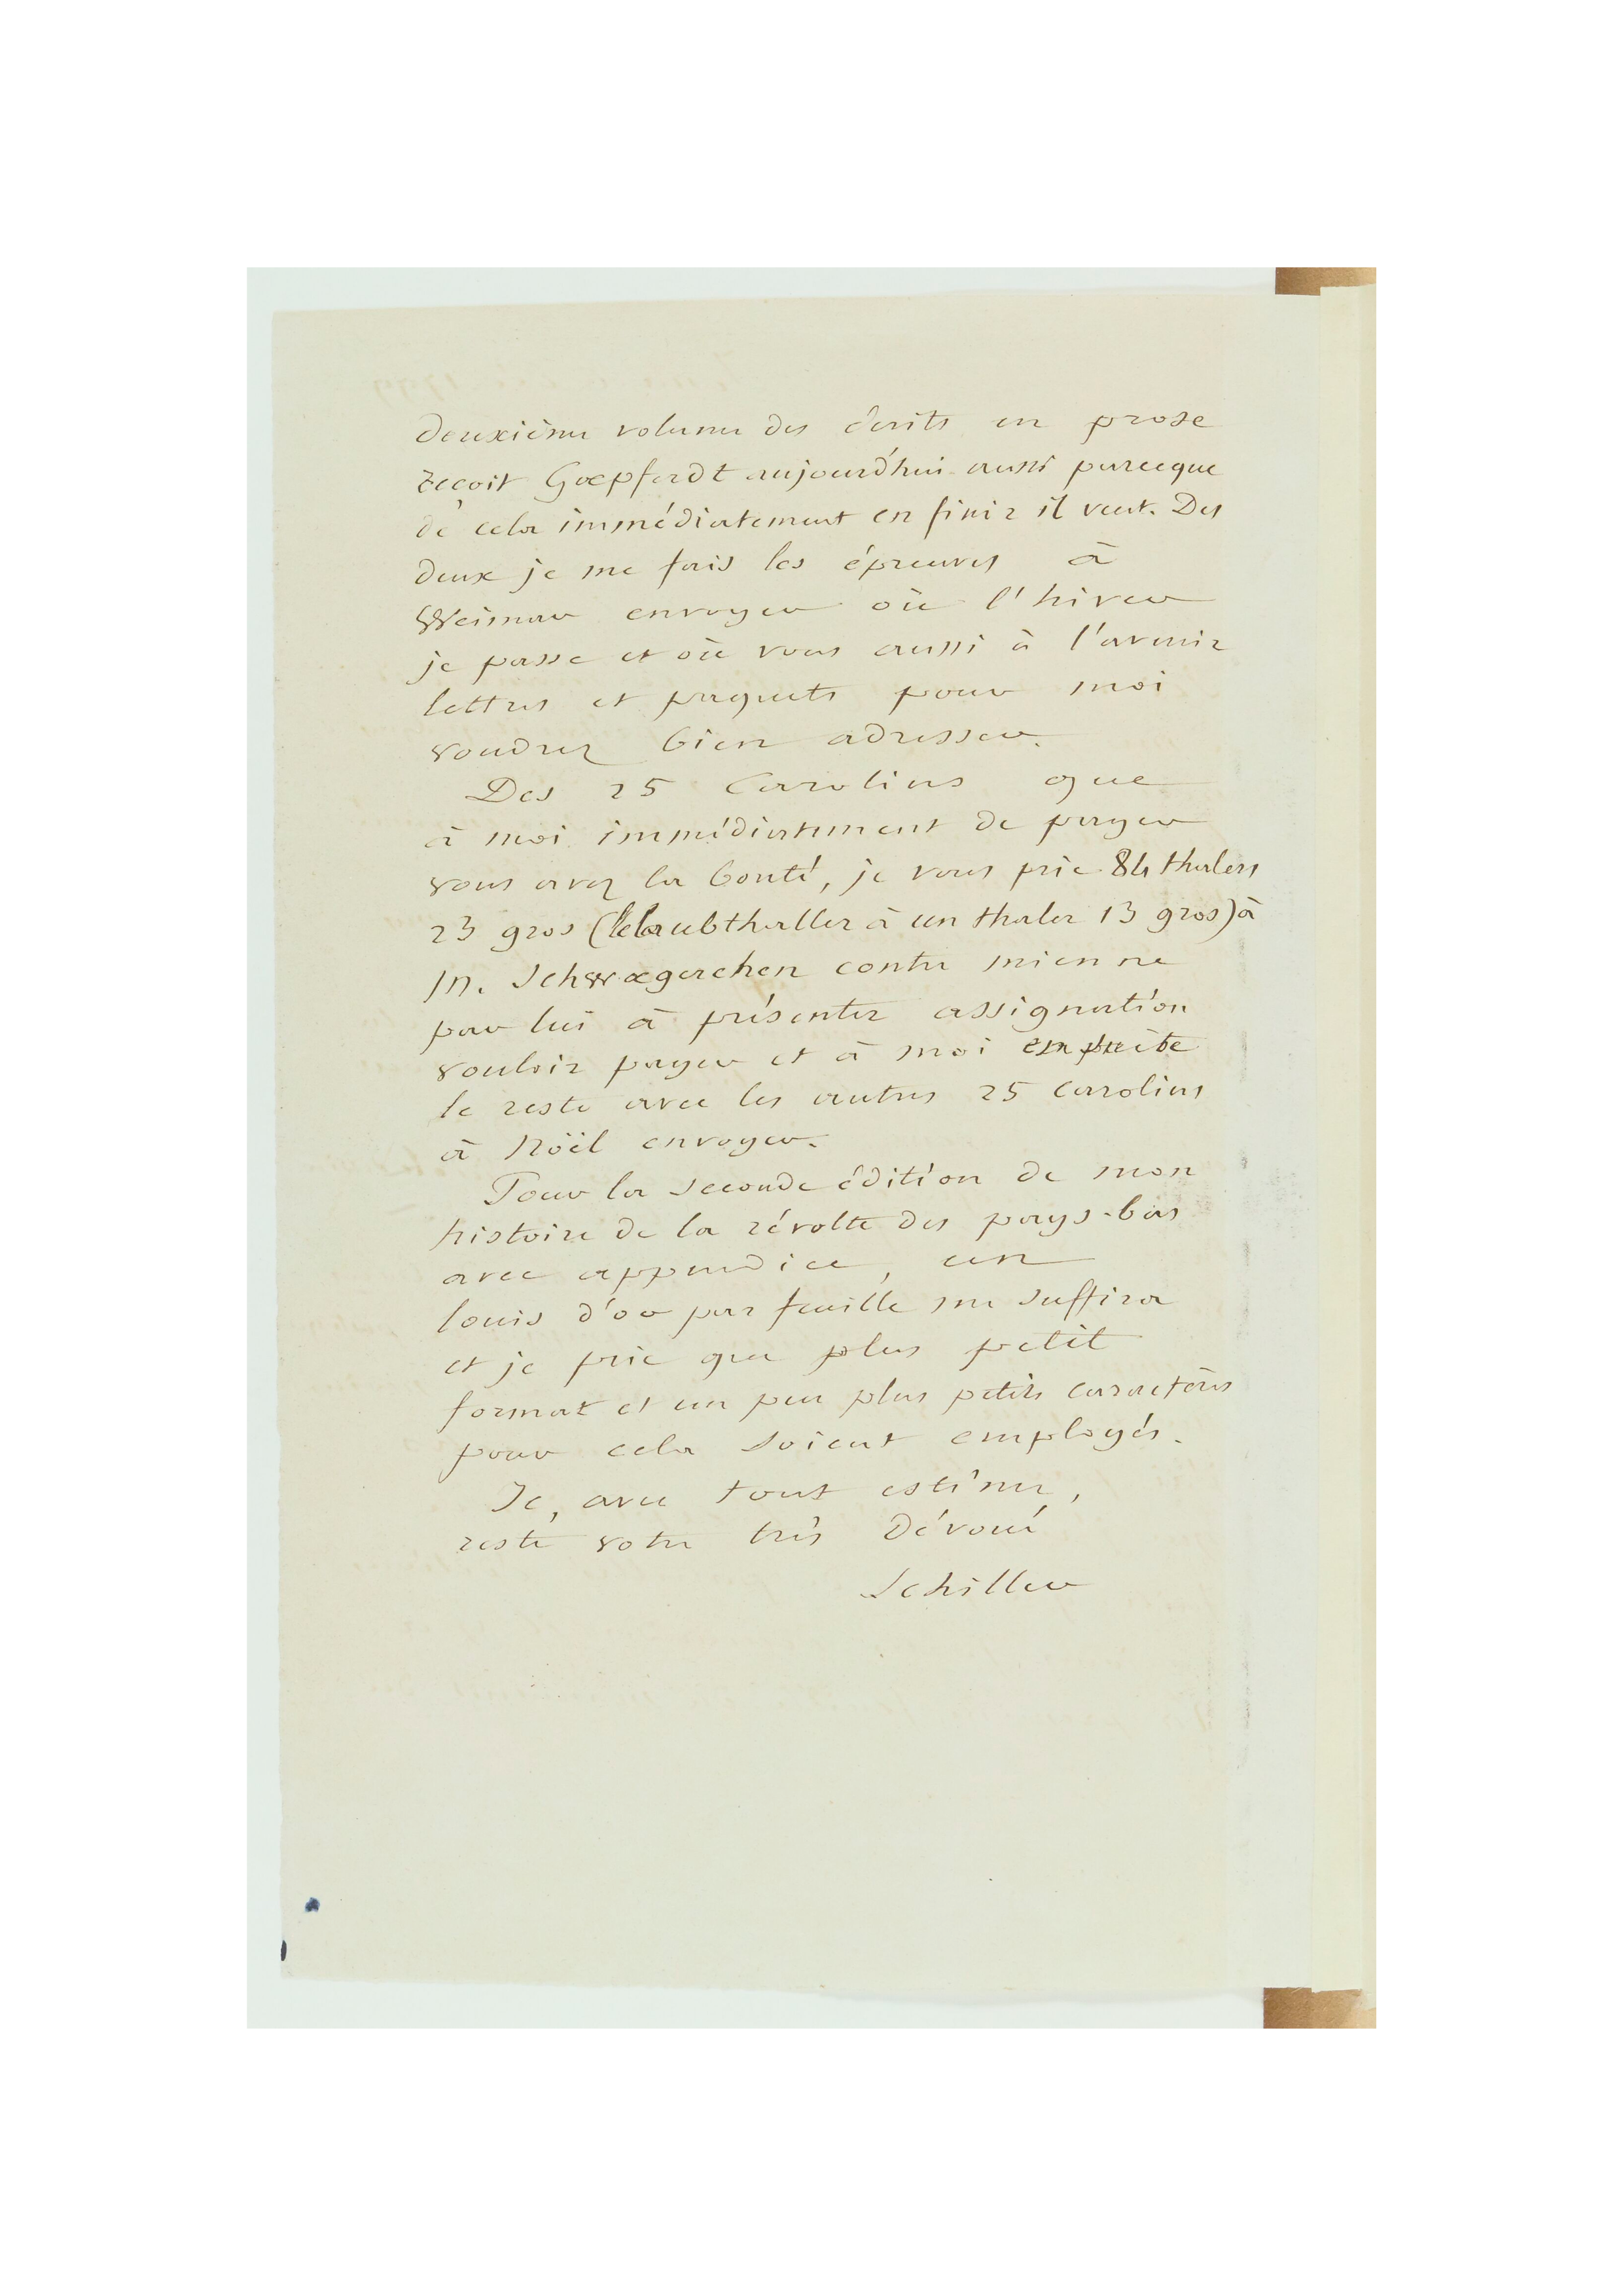 deuxième volume des écrits en prose
reçoit Goepferdt aujourd'hui aussi parceque
de cela immédiatement en finir il veut. Des
deux je me fais les épreuves à
Weimar envoyer où l'hiver
je passe et où vous aussi à l'avenir
lettres et paquets pour moi
voudrez bien adresser.
Des 25 Carolins que
à moi immédiatement de payer
vous avez la bonté, je vous prie 84 thalers
23 gros (le laubthaller à un thaler 13 gros) à
M. Schwaegerchen contre mienne
par lui à présenter assignation
vouloir payer et à moi ensuite
le reste avec les autres 25 carolins
à Nöël envoyer.
Pour la seconde édition de mon
histoire de la révolte des pays-bas
avec appendice, un
louis d'or par feuille me suffira
et je prie que plus petit
format et un peu plus petits caractères
pour cela soient employés.
Je, avec tout estime,
reste votre très dévoué
Schiller